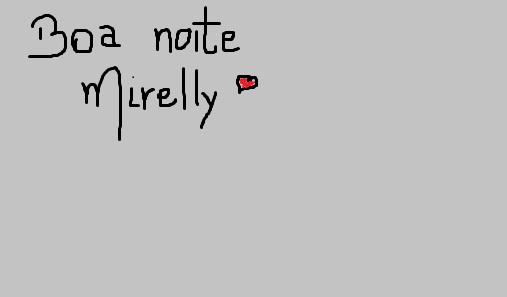 Boa noite
Mirelly